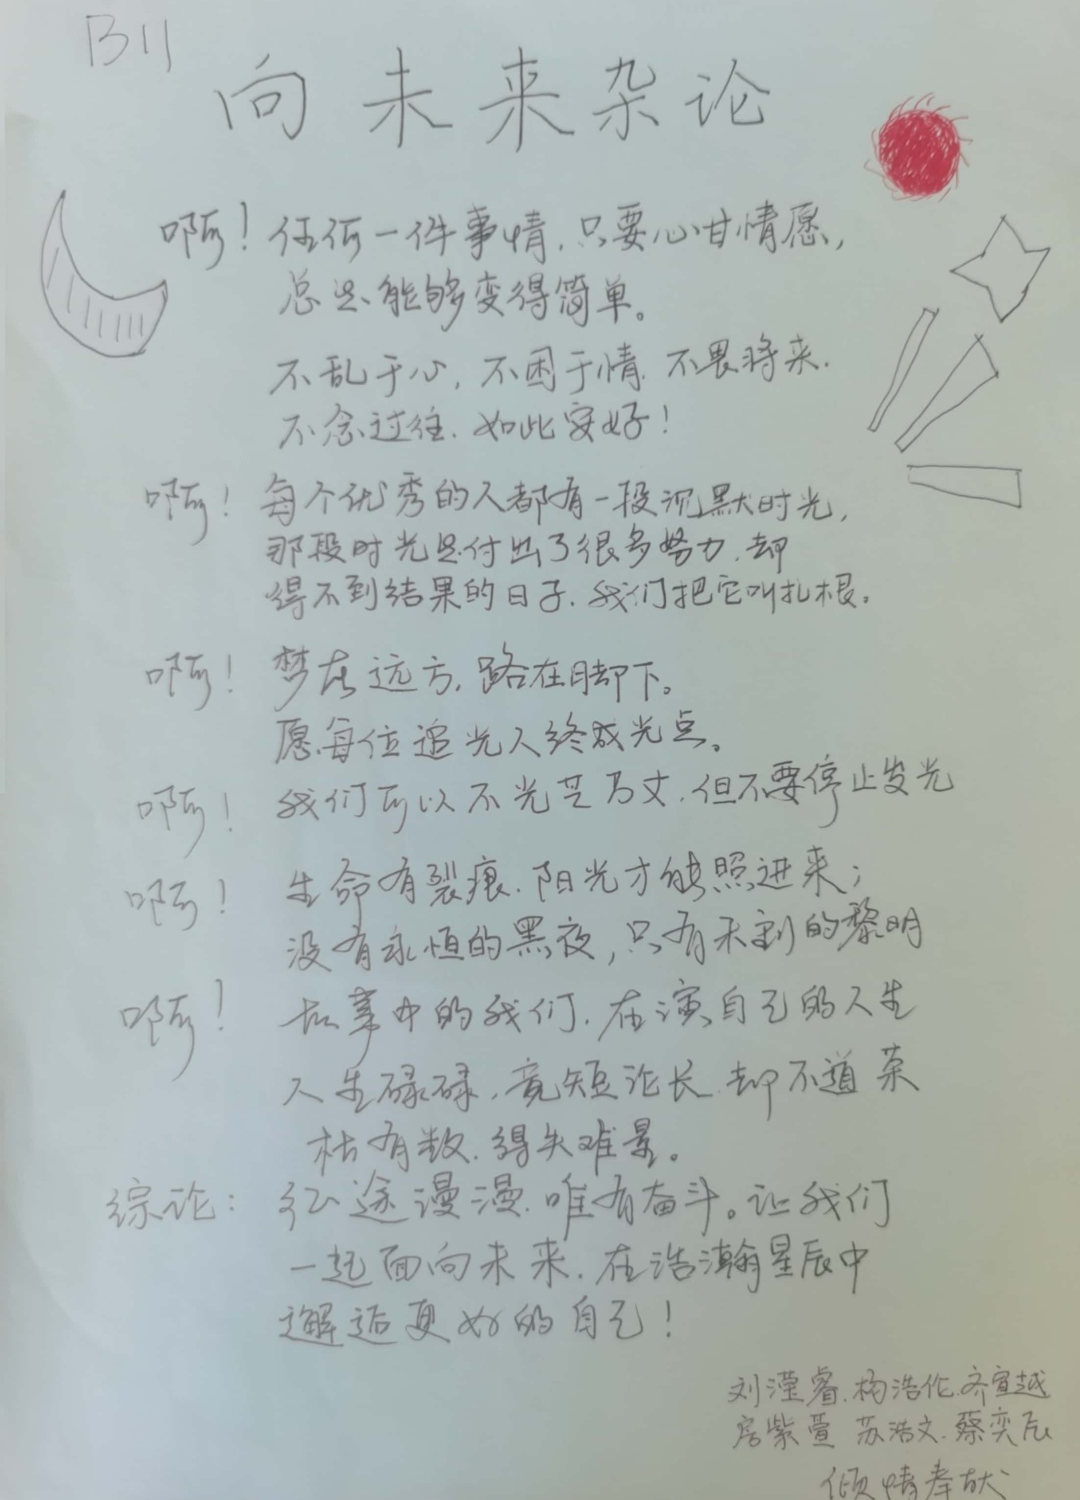 B11
向未来杂论
啊！任何一件事情，只要心甘情愿，
总是能够变得简单。
不乱于心，不困于情．不畏将来．
不念过往．如此安好！
啊！每个优秀的人都有一段沉默时光，
那段时光是付出了很多努力．却
得不到结果的日子．我们把它叫扎根。
啊！梦在远方．路在脚下。
愿每位追光人终成光点。
啊！我们可以不光芒万丈．但不要停止发光
啊！生命有裂痕．阳光才能照进来；
没有永恒的黑夜，只有未到的黎明
啊！故事中的我们．在演自己的人生
人生碌碌．竞短论长．却不道荣
枯有数．得失难量。
综论：征途漫漫．唯有奋斗。让我们
一起面向未来．在浩瀚星辰中
邂逅更好的自己！
刘滢睿．杨浩伦．齐宣越
房紫萱 苏浩文．蔡奕辰
倾情奉献